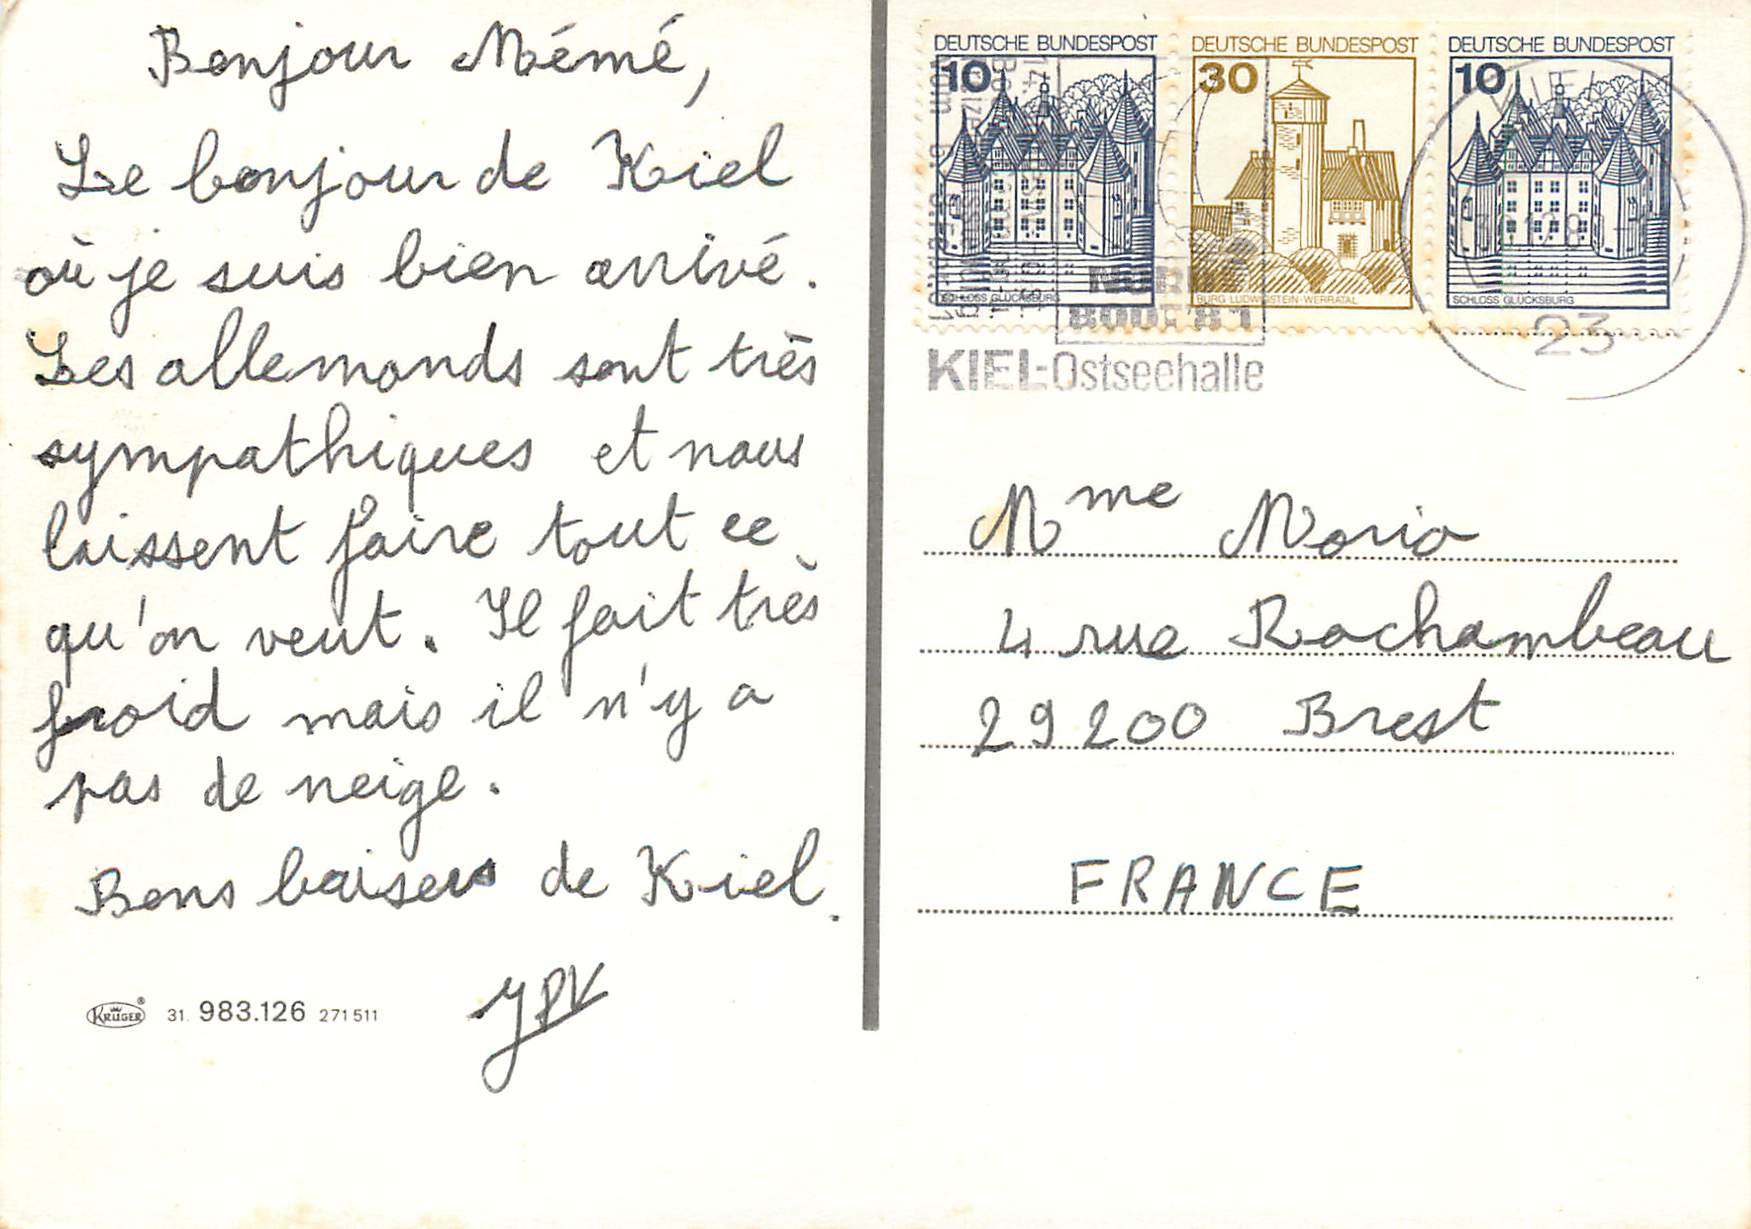 Bonjour Mémé,
Le bonjour de Kiel
où je suis bien arrivé.
Les allemands sont très
sympathiques et nous
laissent faire tout ce
qu'on veut. Il fait très
froid mais il n'y a
pas de neige.
Bons baisers de Kiel.
JPV
KRÜGER® 31. 983.126 271 511
DEUTSCHE BUNDESPOST
10
SCHLOSS GLÜCKSBURG
DEUTSCHE BUNDESPOST
30
BURG LUDWIGSTEIN·WERRATAL
DEUTSCHE BUNDESPOST
10
SCHLOSS GLÜCKSBURG
KIEL-Ostseehalle
23
Mme Morio
4 rue Rochambeau
29200 Brest
FRANCE